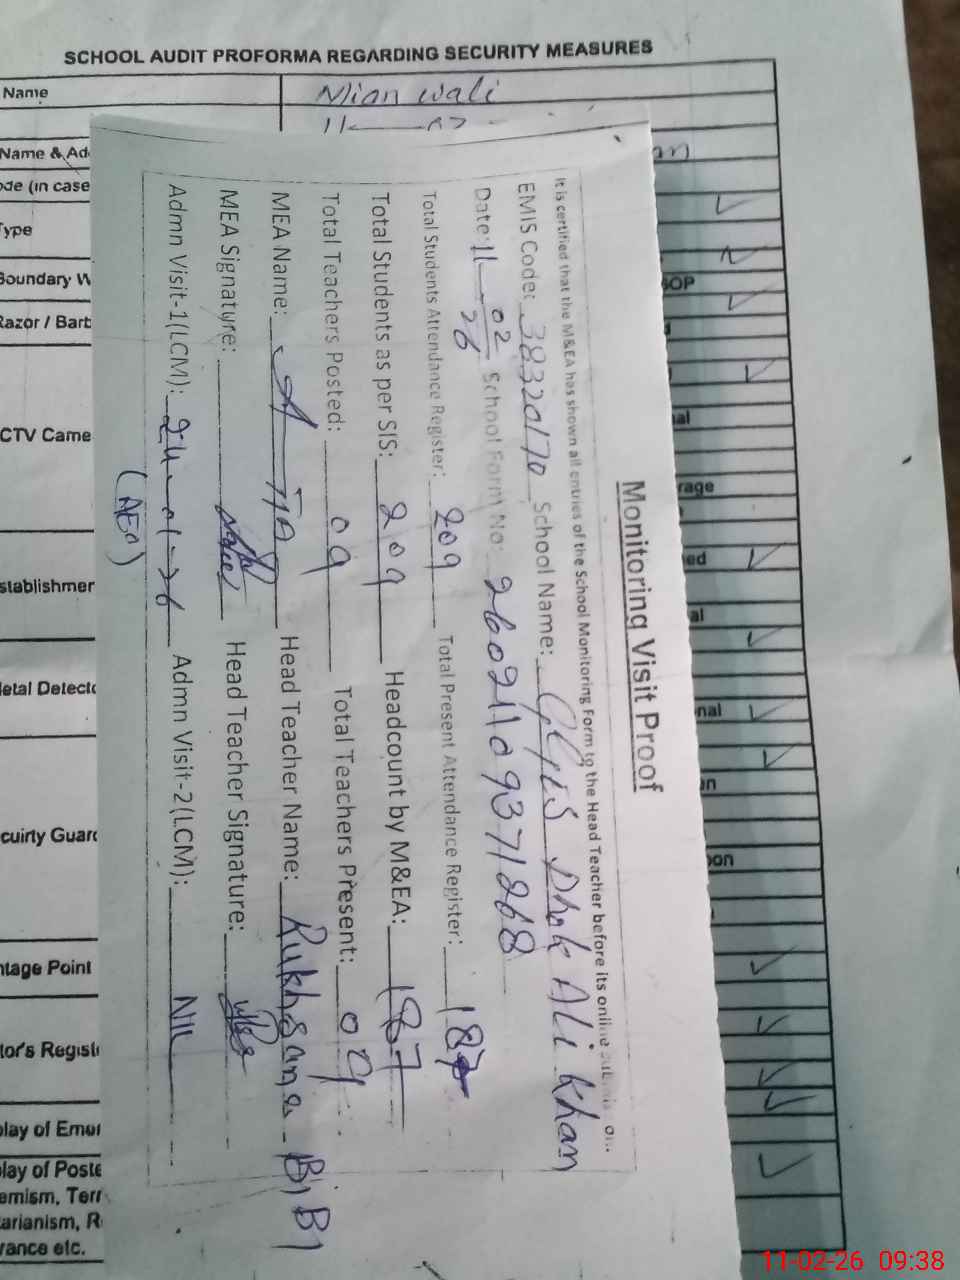 SCHOOL AUDIT PROFORMA REGARDING SECURITY MEASURES
Name Mianwali
Name & Ad
ode (in case
Type
Boundary W SOP
Razor / Barb
CTV Came
rage
stablishmen
ed
al
etal Detecto
nal
on
cuirty Guard
on
ntage Point
tor's Regist
play of Emer
play of Poste
emism, Terr
tarianism, R
vance etc.
Monitoring Visit Proof
It is certified that the M&EA has shown all entries of the School Monitoring Form to the Head Teacher before its online
EMIS Code: 38320170 School Name: GGES Dhok Ali Khan
Date: 11-02-26 School Form No: 26021109371268
Total Students Attendance Register: 209 Total Present Attendance Register: 187
Total Students as per SIS: 209 Headcount by M&EA: 187
Total Teachers Posted: 09 Total Teachers Present: 09
MEA Name: Head Teacher Name: Rukhsana BiBi
MEA Signature: Head Teacher Signature:
Admn Visit-1(LCM): 24-01-26 Admn Visit-2(LCM): NIL
(AEO)
11-02-26 09:38